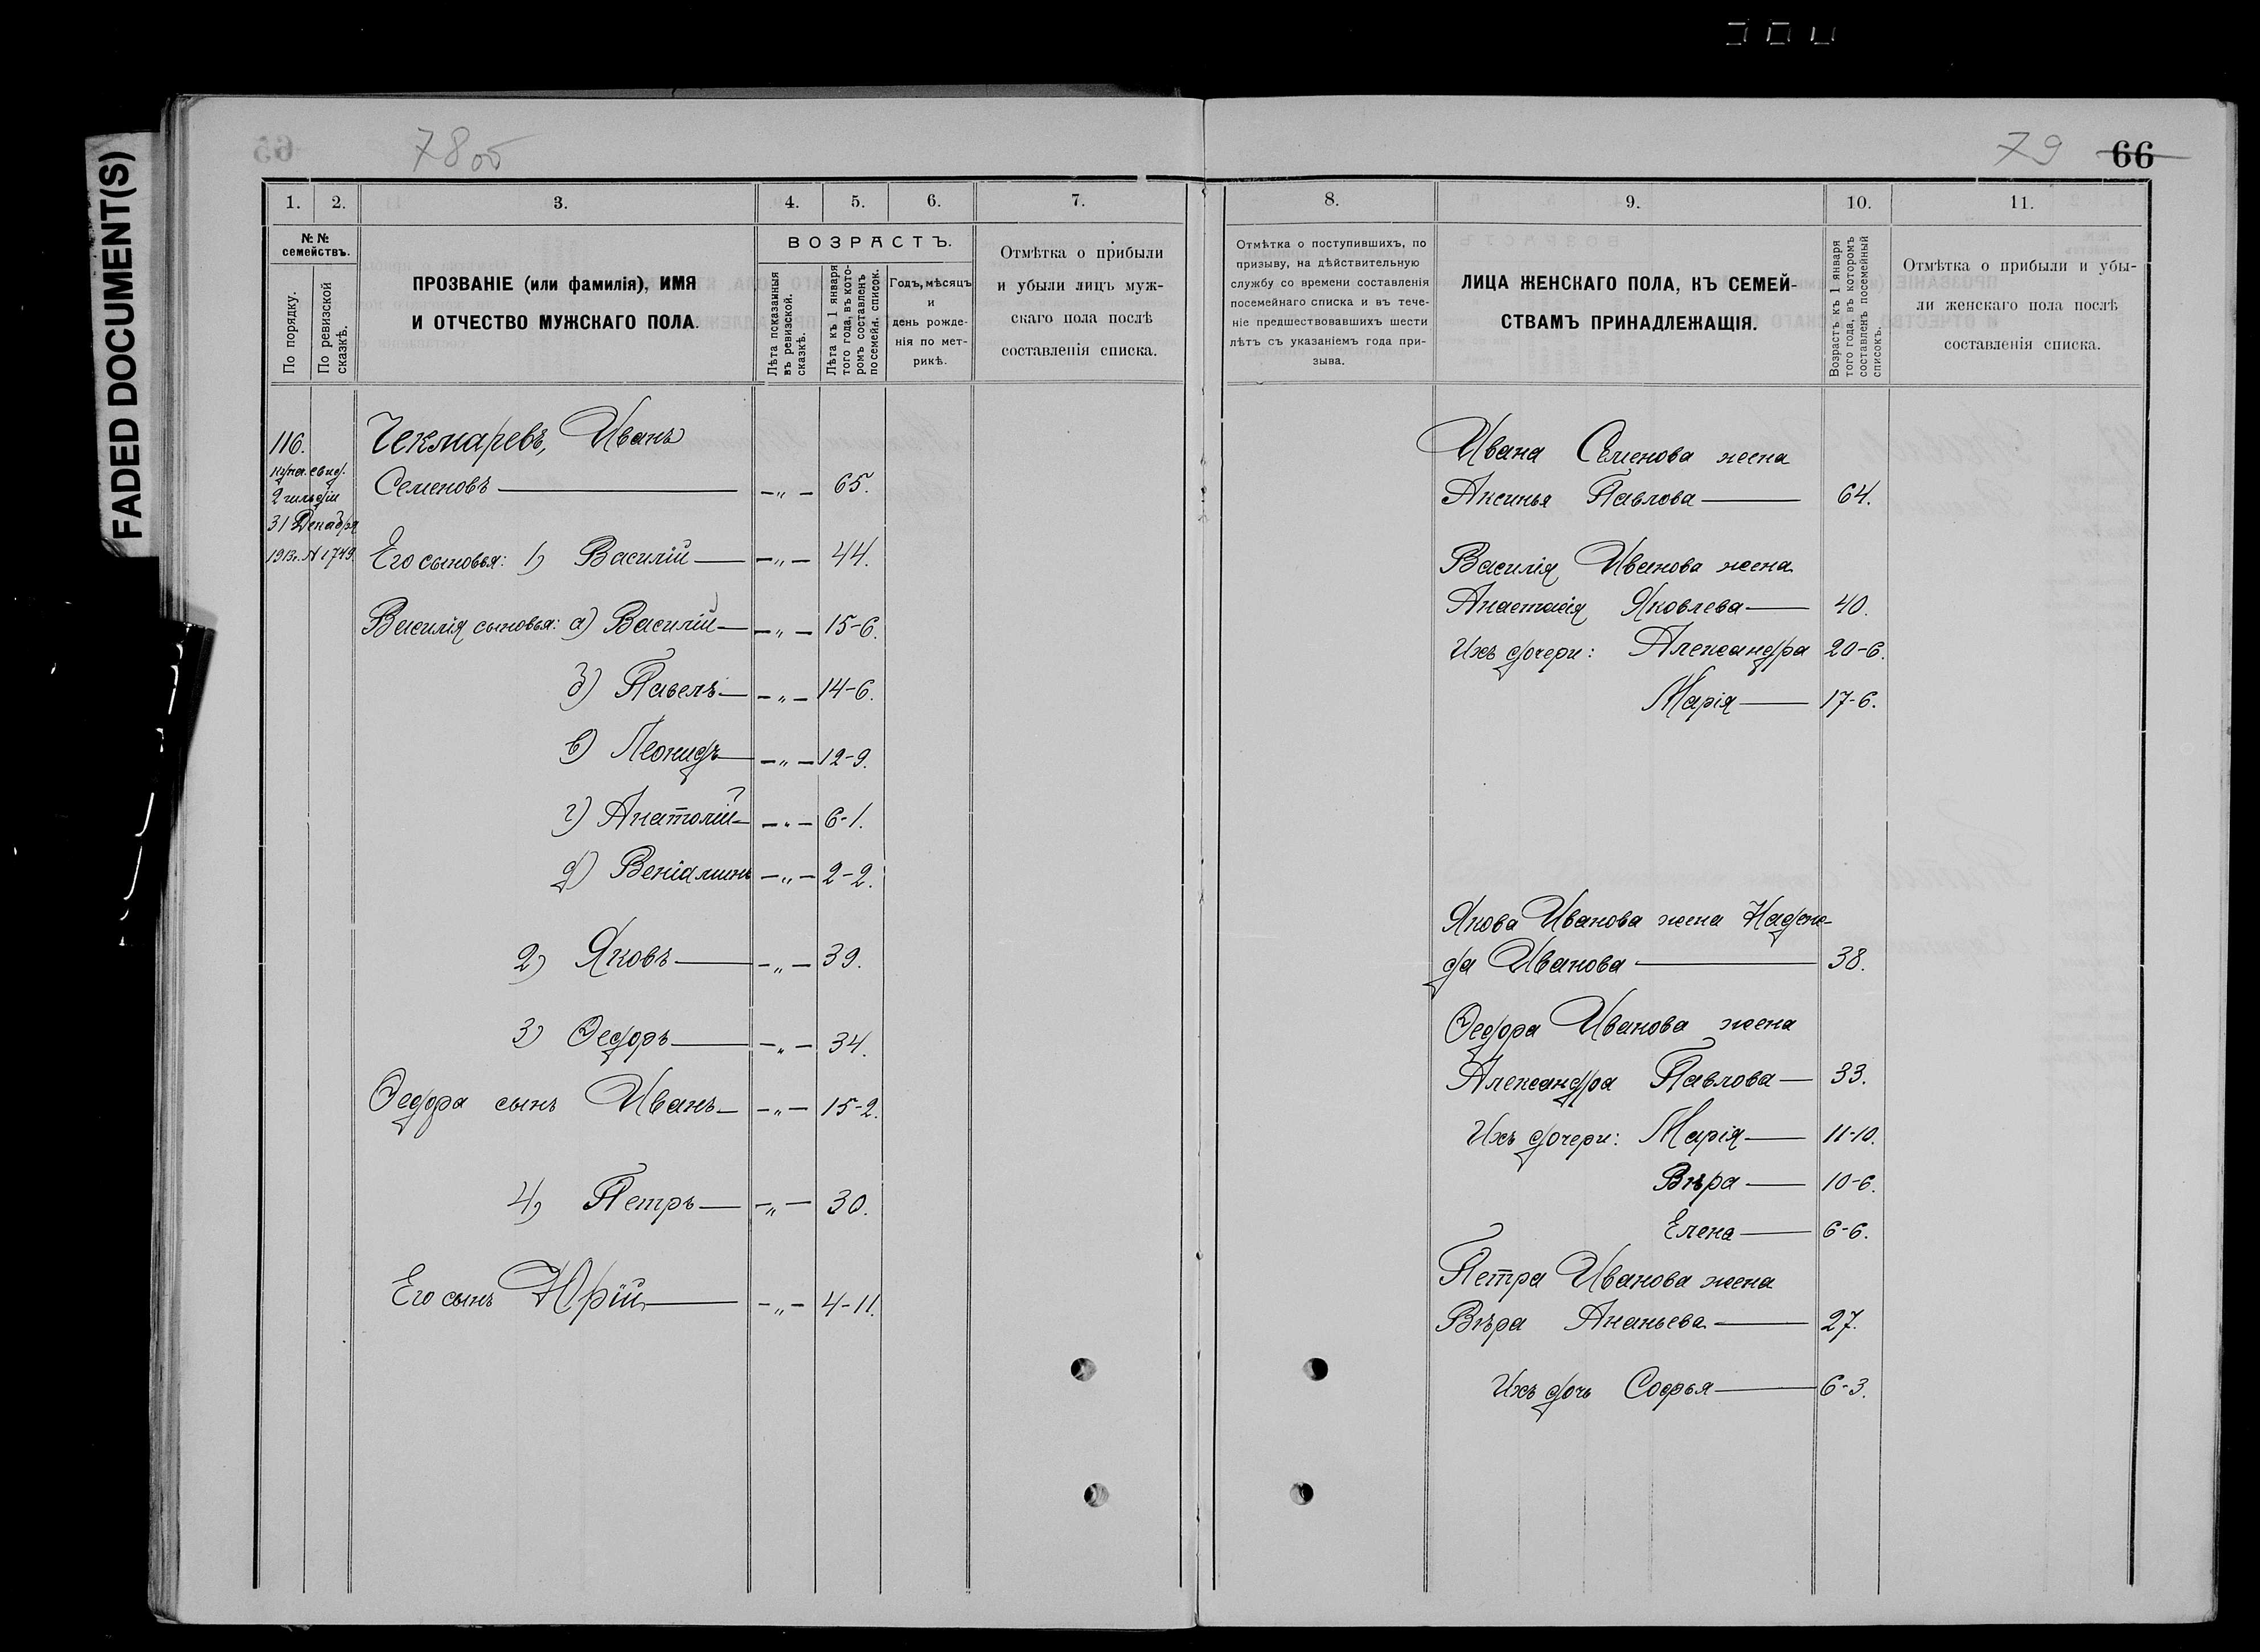 FADED DOCUMENT(S)
78 об
1.
2.
3.
4.
5.
6.
7.
№№
семействъ.
По порядку.
По ревизской
сказкѣ.
ПРОЗВАНІЕ (или фамилія), ИМЯ
И ОТЧЕСТВО МУЖСКАГО ПОЛА.
ВОЗРАСТЪ.
Лѣта показанныя
въ ревизской.
сказкѣ.
Лѣта къ 1 января
того года, въ кото-
ромъ составленъ
посемейн. список.
Годъ, мѣсяцъ
и
день рожде-
нія по мет-
рикѣ.
Отмѣтка о прибыли
и убыли лицъ муж-
скаго пола послѣ
составленія списка.
116.
купч. свид.
2 гильдіи
31 Декабря
1913г. № 1749.
Чекмаревъ, Иванъ
Семеновъ — „ — 65.
Его сыновья: 1) Василій — „ — 44.
Василія сыновья: а) Василій — „ — 15-6.
б) Павелъ — „ — 14-6.
в) Леонидъ — „ — 12-9.
г) Анатолій — „ — 6-1.
д) Веніаминъ — „ — 2-2.
2) Яковъ — „ — 39.
3) Ѳедоръ — „ — 34.
Ѳедора сынъ Иванъ — „ — 15-2.
4) Петръ — „ — 30.
Его сынъ Юрій — „ — 4-11.
79 66
8.
9.
10.
11.
Отмѣтка о поступившихъ, по
призыву, на дѣйствительную
службу со времени составленія
посемейнаго списка и въ тече-
ніе предшествовавшихъ шести
лѣтъ съ указаніемъ года при-
зыва.
ЛИЦА ЖЕНСКАГО ПОЛА, КЪ СЕМЕЙ-
СТВАМЪ ПРИНАДЛЕЖАЩІЯ.
Возрастъ къ 1 января
того года, въ которомъ
составленъ посемейный
списокъ.
Отмѣтка о прибыли и убы-
ли женскаго пола послѣ
составленія списка.
Ивана Семенова жена
Аксинья Павлова — 64.
Василія Иванова жена
Анастасія Яковлева — 40.
Ихъ дочери: Александра 20-6.
Марія — 17-6.
Якова Иванова жена Надеж-
да Иванова — 38.
Ѳедора Иванова жена
Александра Павлова — 33.
Ихъ дочери: Марія — 11-10.
Вѣра — 10-6.
Елена — 6-6.
Петра Иванова жена
Вѣра Ананьева — 27.
Ихъ дочь Софья — 6-3.